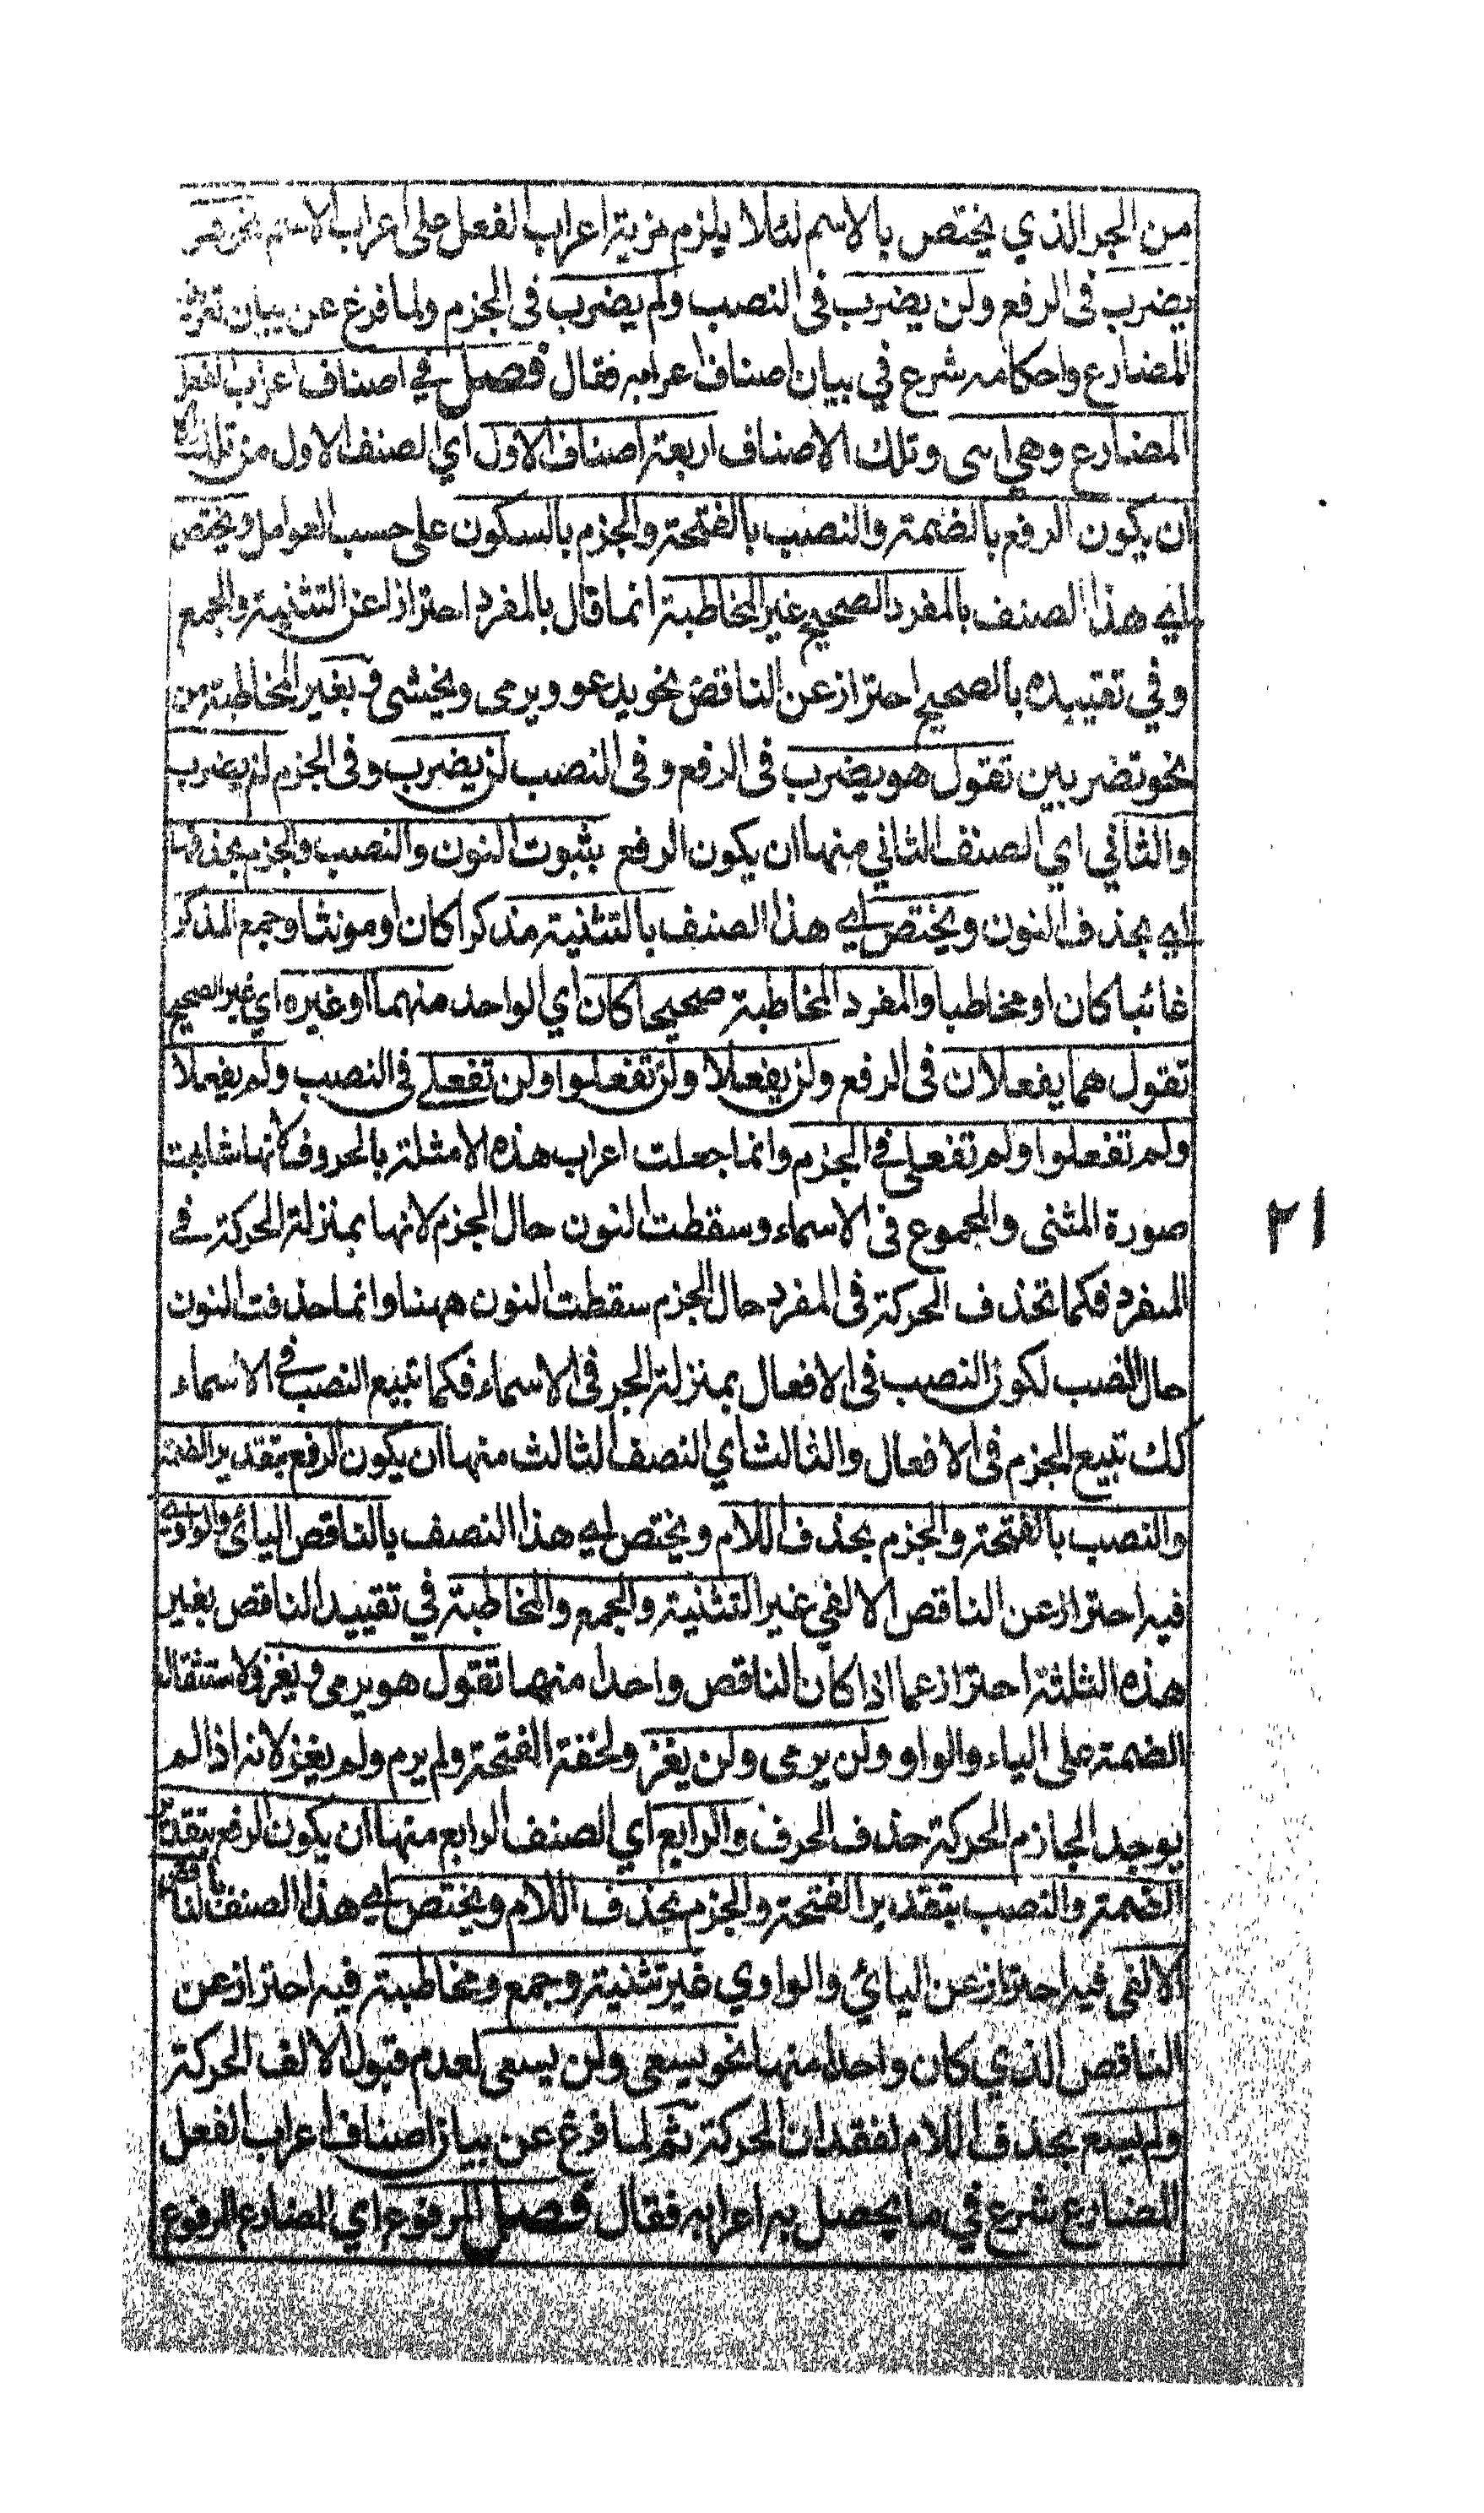 من الجر الذي يختص بالاسم لئلا يلزم مزية اعراب الفعل على اعراب الاسم نحو هو
يضرب فى الرفع ولن يضرب فى النصب ولم يضرب فى الجزم ولما فرغ عن بيان تعريف
المضارع واحكامه شرع في بيان اصناف اعرابه فقال فصل في اصناف اعراب الفعل
المضارع وهي اى وتلك الاصناف اربعة اصناف الاول اي الصنف الاول من تلك
ان يكون الرفع بالضمة والنصب بالفتحة والجزم بالسكون على حسب العوامل ويختص
اي هذا الصنف بالمفرد الصحيح غير المخاطبة انما قال بالمفرد احترازا عن التثنية والجمع
وفي تقييده بالصحيح احتراز عن الناقص نحو يدعو ويرمى ويخشى وبغير المخاطبة من
نحو تضربين تقول هو يضرب فى الرفع وفى النصب لن يضرب وفى الجزم لم يضرب
والثاني اي الصنف الثاني منها ان يكون الرفع بثبوت النون والنصب والجزم بحذفها
اي بحذف النون ويختص اي هذا الصنف بالتثنية مذكرا كان او مونثا وجمع المذكر
غائبا كان او مخاطبا والمفرد المخاطبة صحيحا كان اي الواحد منهما او غيره اي غير الصحيح
تقول هما يفعلان فى الرفع ولن يفعلا ولن تفعلوا ولن تفعلي فى النصب ولم يفعلا
ولم تفعلوا ولم تفعلى في الجزم وانما جعلت اعراب هذه الامثلة بالحروف لانها شابهت
صورة المثنى والمجموع فى الاسماء وسقطت النون حال الجزم لانها بمنزلة الحركة في
المفرد فكما تحذف الحركة فى المفرد حال الجزم سقطت النون ههنا وانما حذفت النون
حال النصب لكون النصب فى الافعال بمنزلة الجر فى الاسماء فكما تبيع النصب في الاسماء
كك تبيع الجزم فى الافعال والثالث اي النصف الثالث منها ان يكون الرفع بتقدير الضمة
والنصب بالفتحة والجزم بحذف اللام ويختص اي هذا النصف بالناقص اليائى والواوي
فيه احتراز عن الناقص الالفي غير التثنية والجمع والمخاطبة في تقييد الناقص بغير
هذه الثلثة احتراز عما اذا كان الناقص واحدا منها تقول هو يرمى ويغزو لاستثقال
الضمة على الياء والواو ولن يرمى ولن يغز ولخفة الفتحة ولم يرم ولم يغز لانه اذا لم
يوجد الجازم الحركة حذف الحرف والرابع اي الصنف الرابع منها ان يكون الرفع بتقدير
الضمة والنصب بتقدير الفتحة والجزم بحذف اللام ويختص اي هذا الصنف بالناقص
الالفى فيه احتراز عن اليائي والواوي غير تثنية وجمع ومخاطبة فيه احتراز عن
الناقص الذي كان واحدا منها نحو يسعى ولن يسعى لعدم قبول الالف الحركة
ولم يسع بحذف اللام لفقدان الحركة ثم لما فرغ عن بيان اصناف اعراب الفعل
المضارع شرع في ما يحصل به اعرابه فقال فصل المرفوع اي المضارع المرفوع
٢١